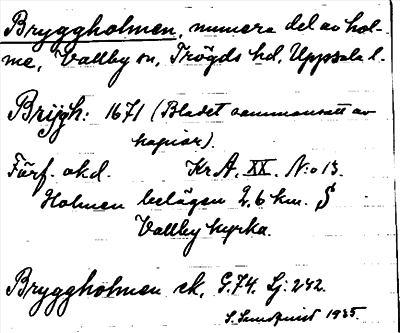 Bryggholmen, numera del av hol-
me, Vallby sn, Trögds hd, Uppsala l.
Brijgh: 1671 (Bladet sammansatt av
kopior).
Förf. okd. Kr A. XX. N:o 13.
Holmen belägen 2,6 km. S
Vallby kyrka.
Bryggholmen ek. G.74. Lj: 242.
S. Sundquist 1935.